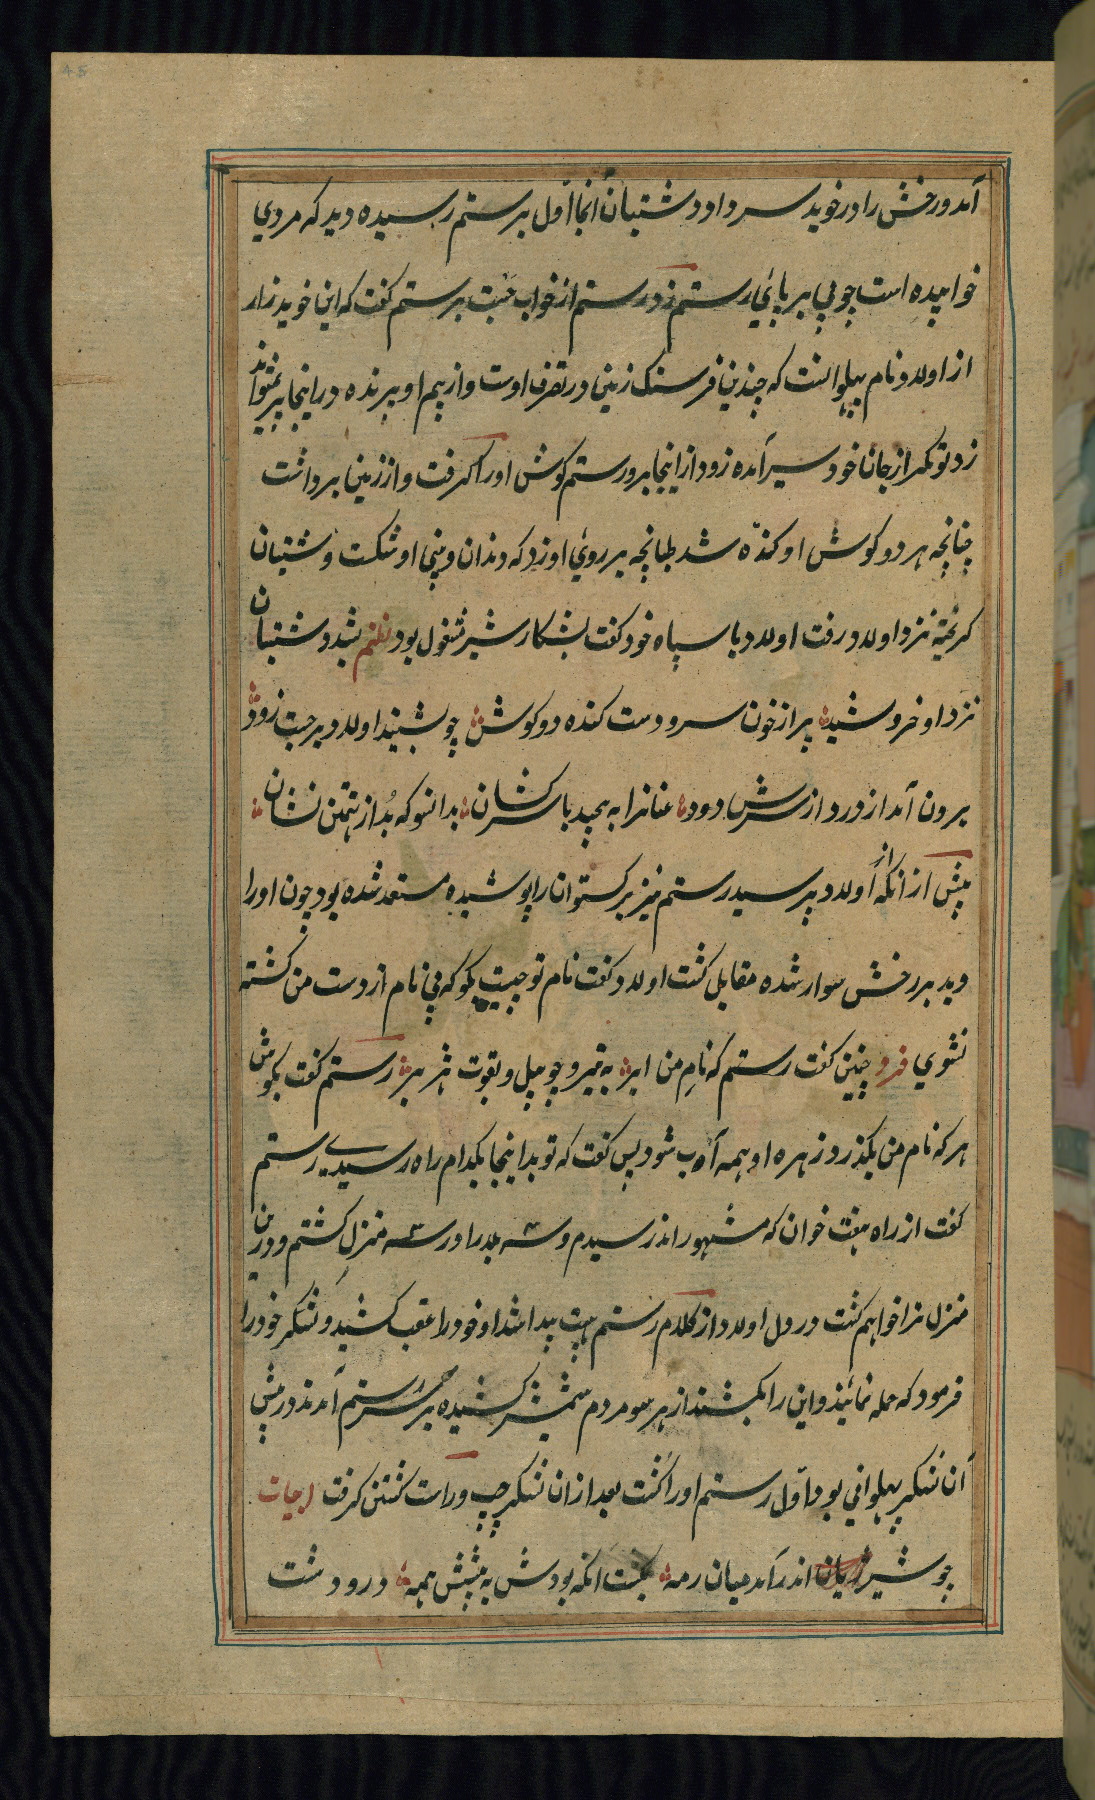 آمد و رخش را در خوید سر داد و دشتبان آنجا اول بر رستم رسیده دید که مردی
خوابیده است چوبی بر پای رستم زد رستم از خواب جست بر ستم کفت که این خوید زار
از اولاد نام پهلوانست که چندین فرسنک زمین در تصرف اوست و از بیم او پرنده در اینجا پر نمیتواند
زد تو مکر از جان خود سیر آمده زود از اینجا برو رستم کوش او را کرفت و از زمین برداشت
چنانچه هر دو کوش او کنده شد طبانچه بر روی او زد که دندان و بینی او شکست دشتبان
کریخته نزد اولاد رفت اولاد با سپاه خود کفت بشکار شیر مشغول بود نظم بشد دشتبان
نزد او خروشید پر از خون سر و دست کنده دو کوش چو بشنید اولاد بر جست زود
برون آمد از درد از سرش دود عنانرا به پیچید با سرکشان بدانسو که بُد از تهمتن نشان
پیش از انکه اولاد بپرسید رستم نیز برکستوان را پوشیده مستعد شده بود چون او را
دید بر رخش سوار شده مقابل کشت اولاد کفت نام تو چیست بکو که بی نام از دست من کشته
نشوی فرد چنین کفت رستم که نامِ من ابر به نیرو چو پیل و بقوت هژبر رستم کفت بکوش
هر که نام من بکذرد زهره او همه آب شود پس کفت که تو بدینجا بکدام راه رسیدی رستم
کفت از راه هفت خوان که مشهور اند رسیدم و سه بلا را در سه منزل کشتم و درین
منزل ترا خواهم کشت در دل اولاد از کلام رستم هیبت پیدا شد او خود را عقب کشید و لشکر خود را
فرمود که حمله نمائید و این را بکشند از هر سو مردم شمشیر کشیده بر سر رستم آمدند در پیش
آن لشکر پهلوانی بود اول رستم او را کشت بعد ازان لشکر چپ و راست کشتن کرفت ابیات
چو شیر ژیان اندر آمد میان رمه بکشت انکه بودش به پیشش همه در و دشت